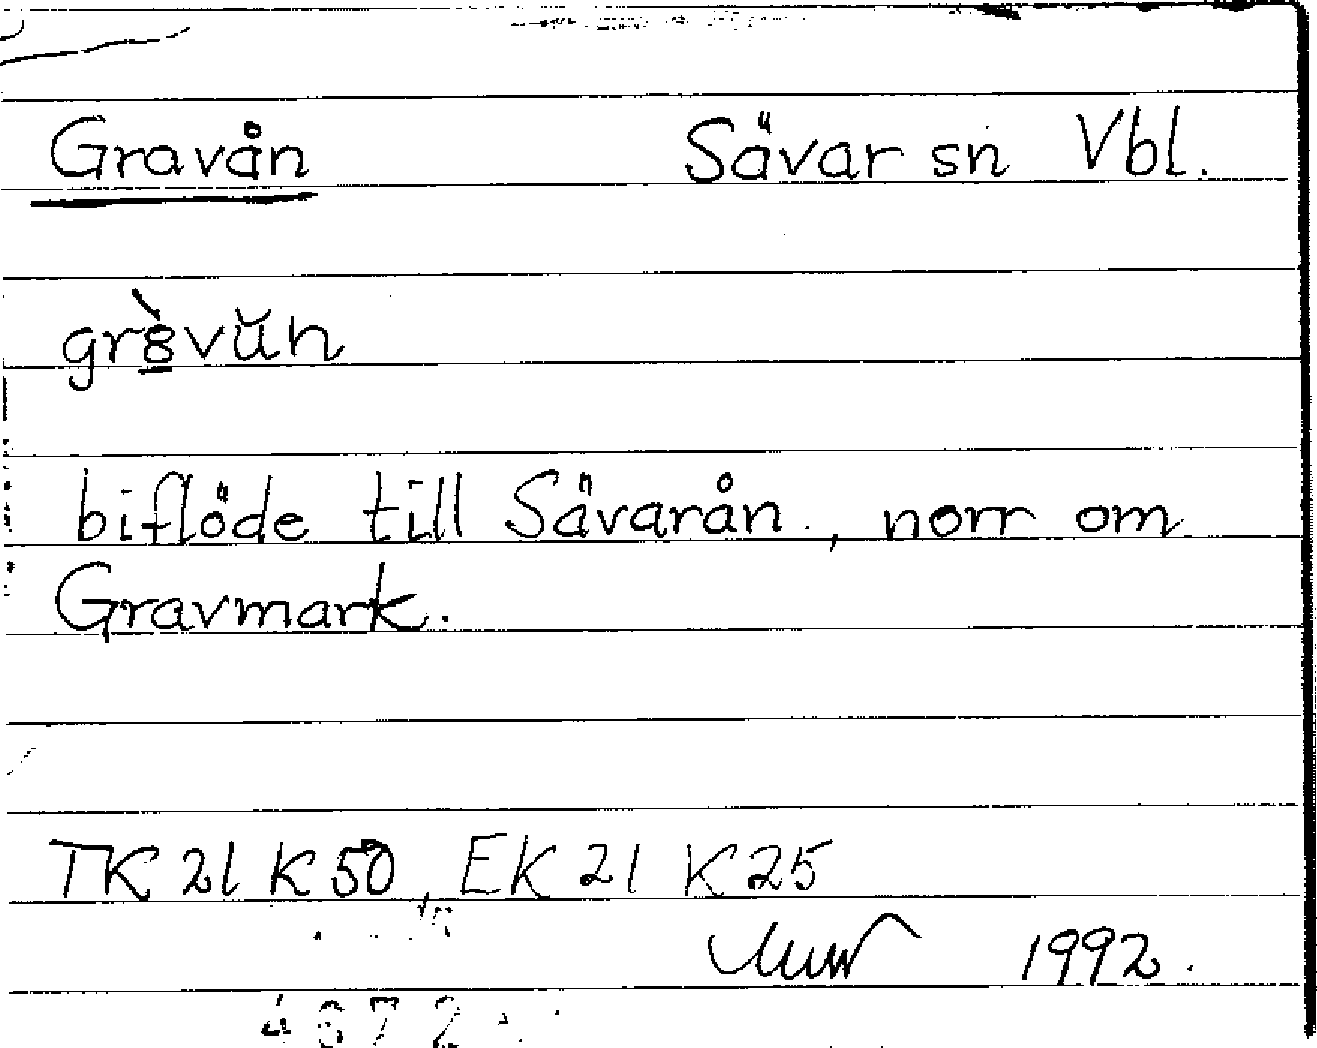 Gravån Sävar sn Vbl.
gr8̀vŭn
biflöde till Sävarån, norr om
Gravmark.
TK 21 K 50, EK 21 K 25
1992.
4672